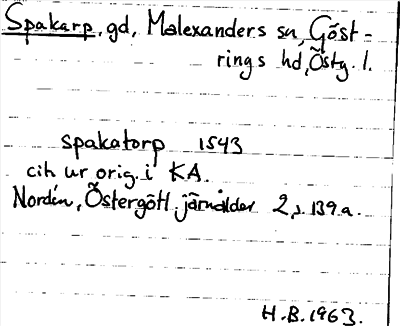 Spakarp, gd, Malexanders sn, Göst-
rings hd, Östg. l.
spakatorp 1543
cit ur orig. i KA.
Nordén, Östergötl. järnålder 2, s. 139 a.
H.B. 1963.